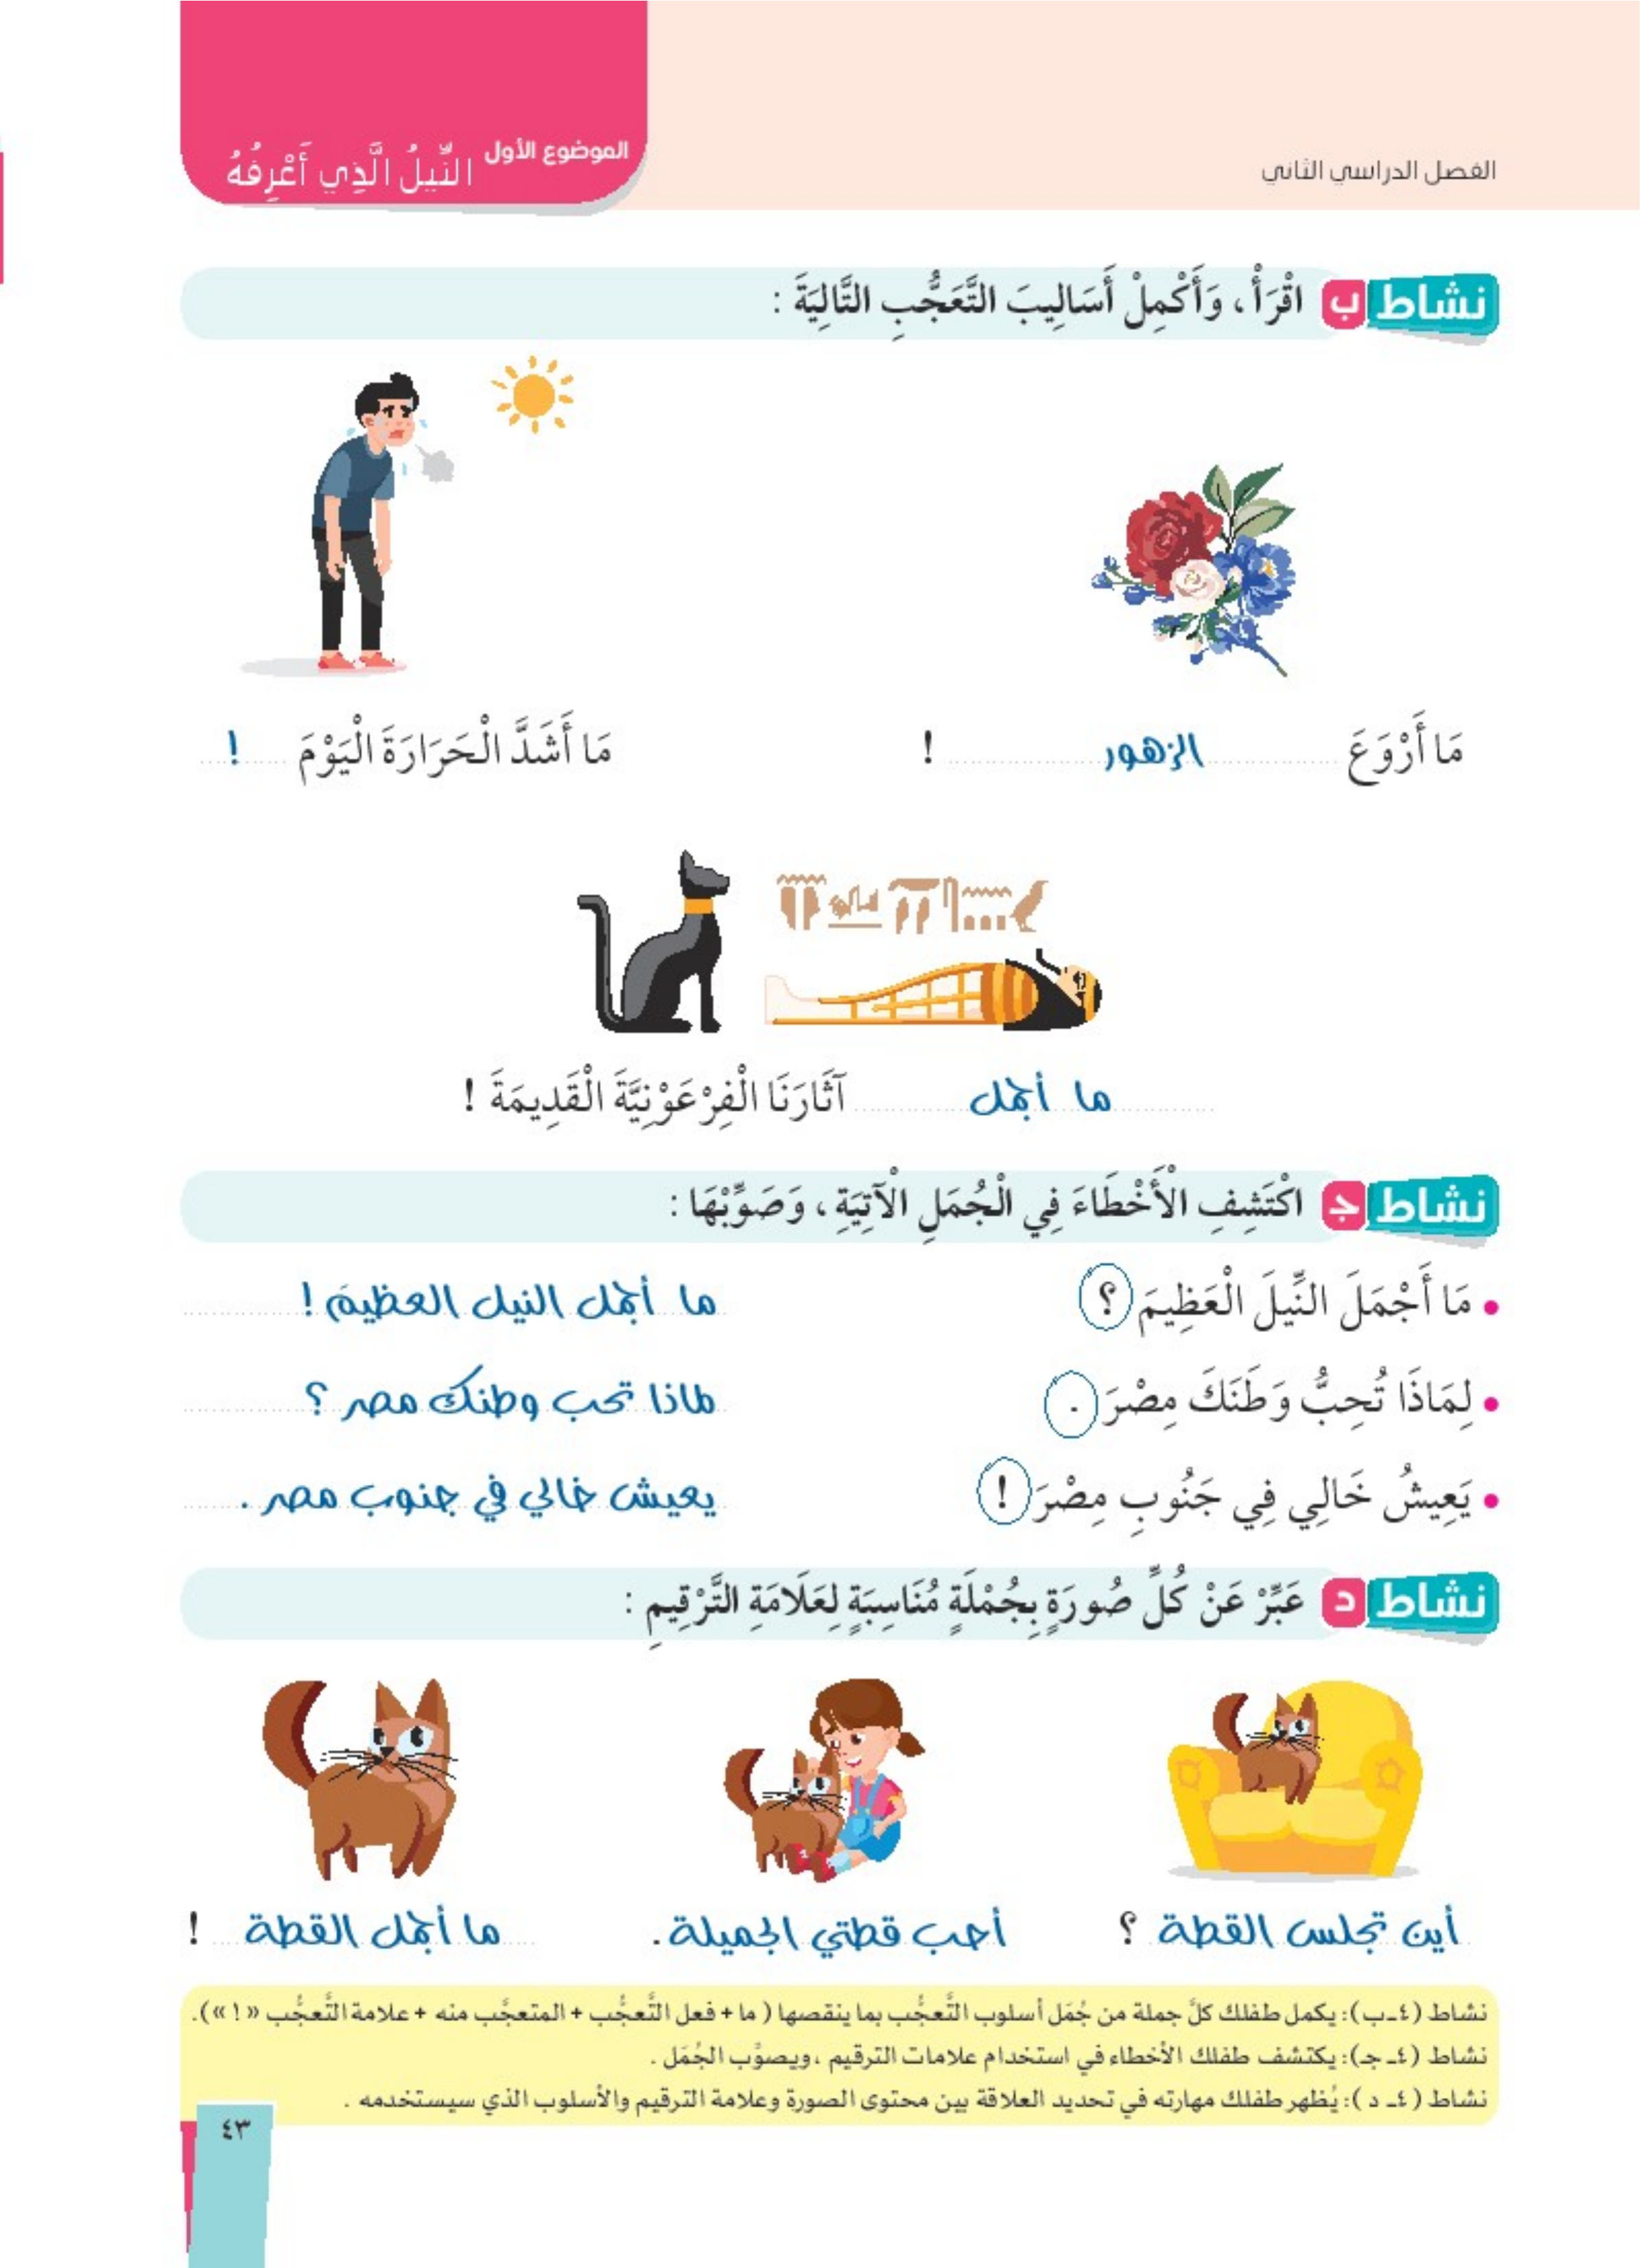 الفصل الدراسي الثاني
الموضوع الأول النِّيلُ الَّذِي أَعْرِفُهُ
نشاط ب اقْرَأْ ، وَأَكْمِلْ أَسَالِيبَ التَّعَجُّبِ التَّالِيَةَ :
مَا أَرْوَعَ الزهور !
مَا أَشَدَّ الْحَرَارَةَ الْيَوْمَ !
ما أجمل آثَارَنَا الْفِرْعَوْنِيَّةَ الْقَدِيمَةَ !
نشاط ج اكْتَشِفِ الْأَخْطَاءَ فِي الْجُمَلِ الْآتِيَةِ ، وَصَوِّبْهَا :
• مَا أَجْمَلَ النِّيلَ الْعَظِيمَ ؟ ما أجمل النيل العظيمَ !
• لِمَاذَا تُحِبُّ وَطَنَكَ مِصْرَ . لماذا تحب وطنك مصر ؟
• يَعِيشُ خَالِي فِي جَنُوبِ مِصْرَ ! يعيش خالي في جنوب مصر .
نشاط د عَبِّرْ عَنْ كُلِّ صُورَةٍ بِجُمْلَةٍ مُنَاسِبَةٍ لِعَلَامَةِ التَّرْقِيمِ :
أين تجلس القطة ؟
أحب قطتي الجميلة .
ما أجمل القطة !
نشاط (٤-ب): يكمل طفلك كلَّ جملة من جُمَل أسلوب التَّعجُّب بما ينقصها ( ما + فعل التَّعجُّب + المتعجَّب منه + علامة التَّعجُّب « ! »).
نشاط (٤- ج): يكتشف طفلك الأخطاء في استخدام علامات الترقيم ، ويصوِّب الجُمَل .
نشاط (٤- د ): يُظهر طفلك مهارته في تحديد العلاقة بين محتوى الصورة وعلامة الترقيم والأسلوب الذي سيستخدمه .
٤٣